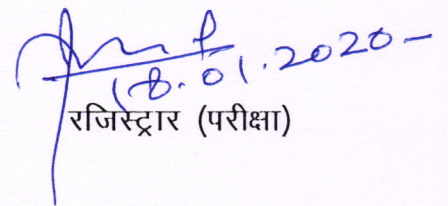 18.01.2020
रजिस्ट्रार (परीक्षा)